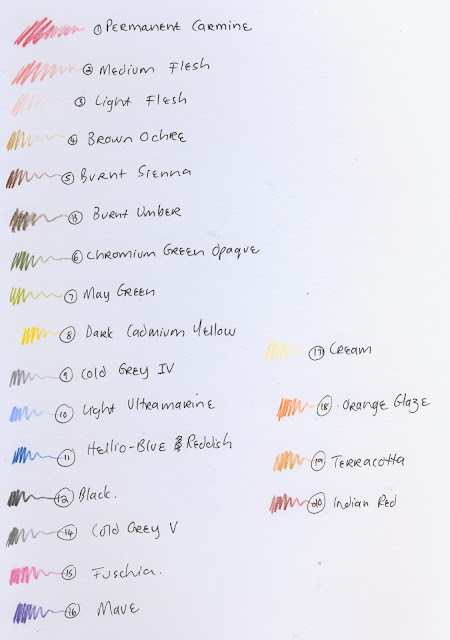 ① Permanent Carmine
② Medium Flesh
③ Light Flesh
④ Brown Ochre
⑤ Burnt Sienna
⑬ Burnt Umber
⑥ Chromium Green Opaque
⑦ May Green
⑧ Dark Cadmium Yellow
⑨ Cold Grey IV
⑩ Light Ultramarine
⑪ Hellio-Blue Reddish
⑫ Black.
⑭ Cold Grey V
⑮ Fuschia.
⑯ Mave
⑰ Cream
⑱ Orange Glaze
⑲ Terracotta
⑳ Indian Red